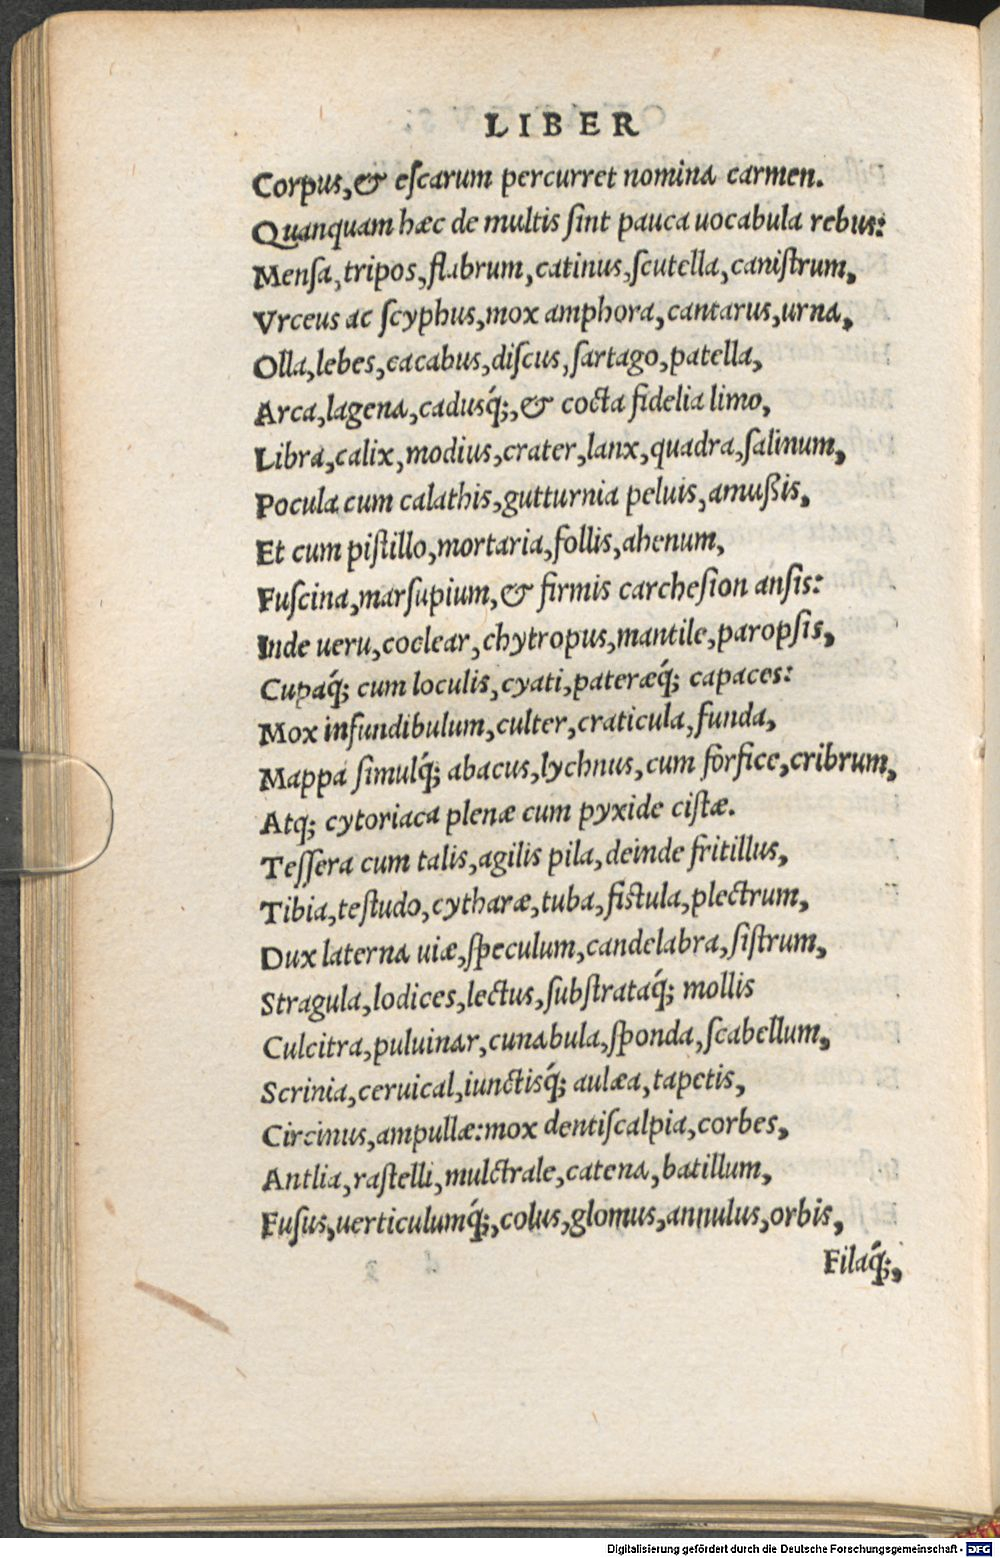 LIBER
Corpus,& eſcarum percurret nomina carmen.
Quanquam hæc de multis ſint pauca uocabula rebus:
Menſa,tripos,flabrum,catinus,ſcutella,caniſtrum,
Vrceus ac ſcyphus,mox amphora,cantarus,urna,
Olla,lebes,cacabus,diſcus,ſartago,patella,
Arca,lagena,cadusq́;,& cocta fidelia limo,
Libra,calix,modius,crater,lanx,quadra,ſalinum,
Pocula cum calathis,gutturnia peluis,amußis,
Et cum piſtillo,mortaria,follis,ahenum,
Fuſcina,marſupium,& firmis carcheſion anſis:
Inde ueru,coclear,chytropus,mantile,paropſis,
Cupaq́; cum loculis,cyati,pateræq́; capaces:
Mox infundibulum,culter,craticula,funda,
Mappa ſimulq́; abacus,lychnus,cum forfice,cribrum,
Atq; cytoriaca plenæ cum pyxide ciſtæ.
Teſſera cum talis,agilis pila,deinde fritillus,
Tibia,teſtudo,cytharæ,tuba,fiſtula,plectrum,
Dux laterna uiæ,ſpeculum,candelabra,ſiſtrum,
Stragula,lodices,lectus,ſubſtrataq́; mollis
Culcitra,puluinar,cunabula,ſponda,ſcabellum,
Scrinia,ceruical,iunctisq́; aulæa,tapetis,
Circinus,ampullæ:mox dentiſcalpia,corbes,
Antlia,raſtelli,mulctrale,catena,batillum,
Fuſus,uerticulumq́;,colus,glomus,annulus,orbis,
Filaq́;,
Digitalisierung gefördert durch die Deutsche Forschungsgemeinschaft - DFG